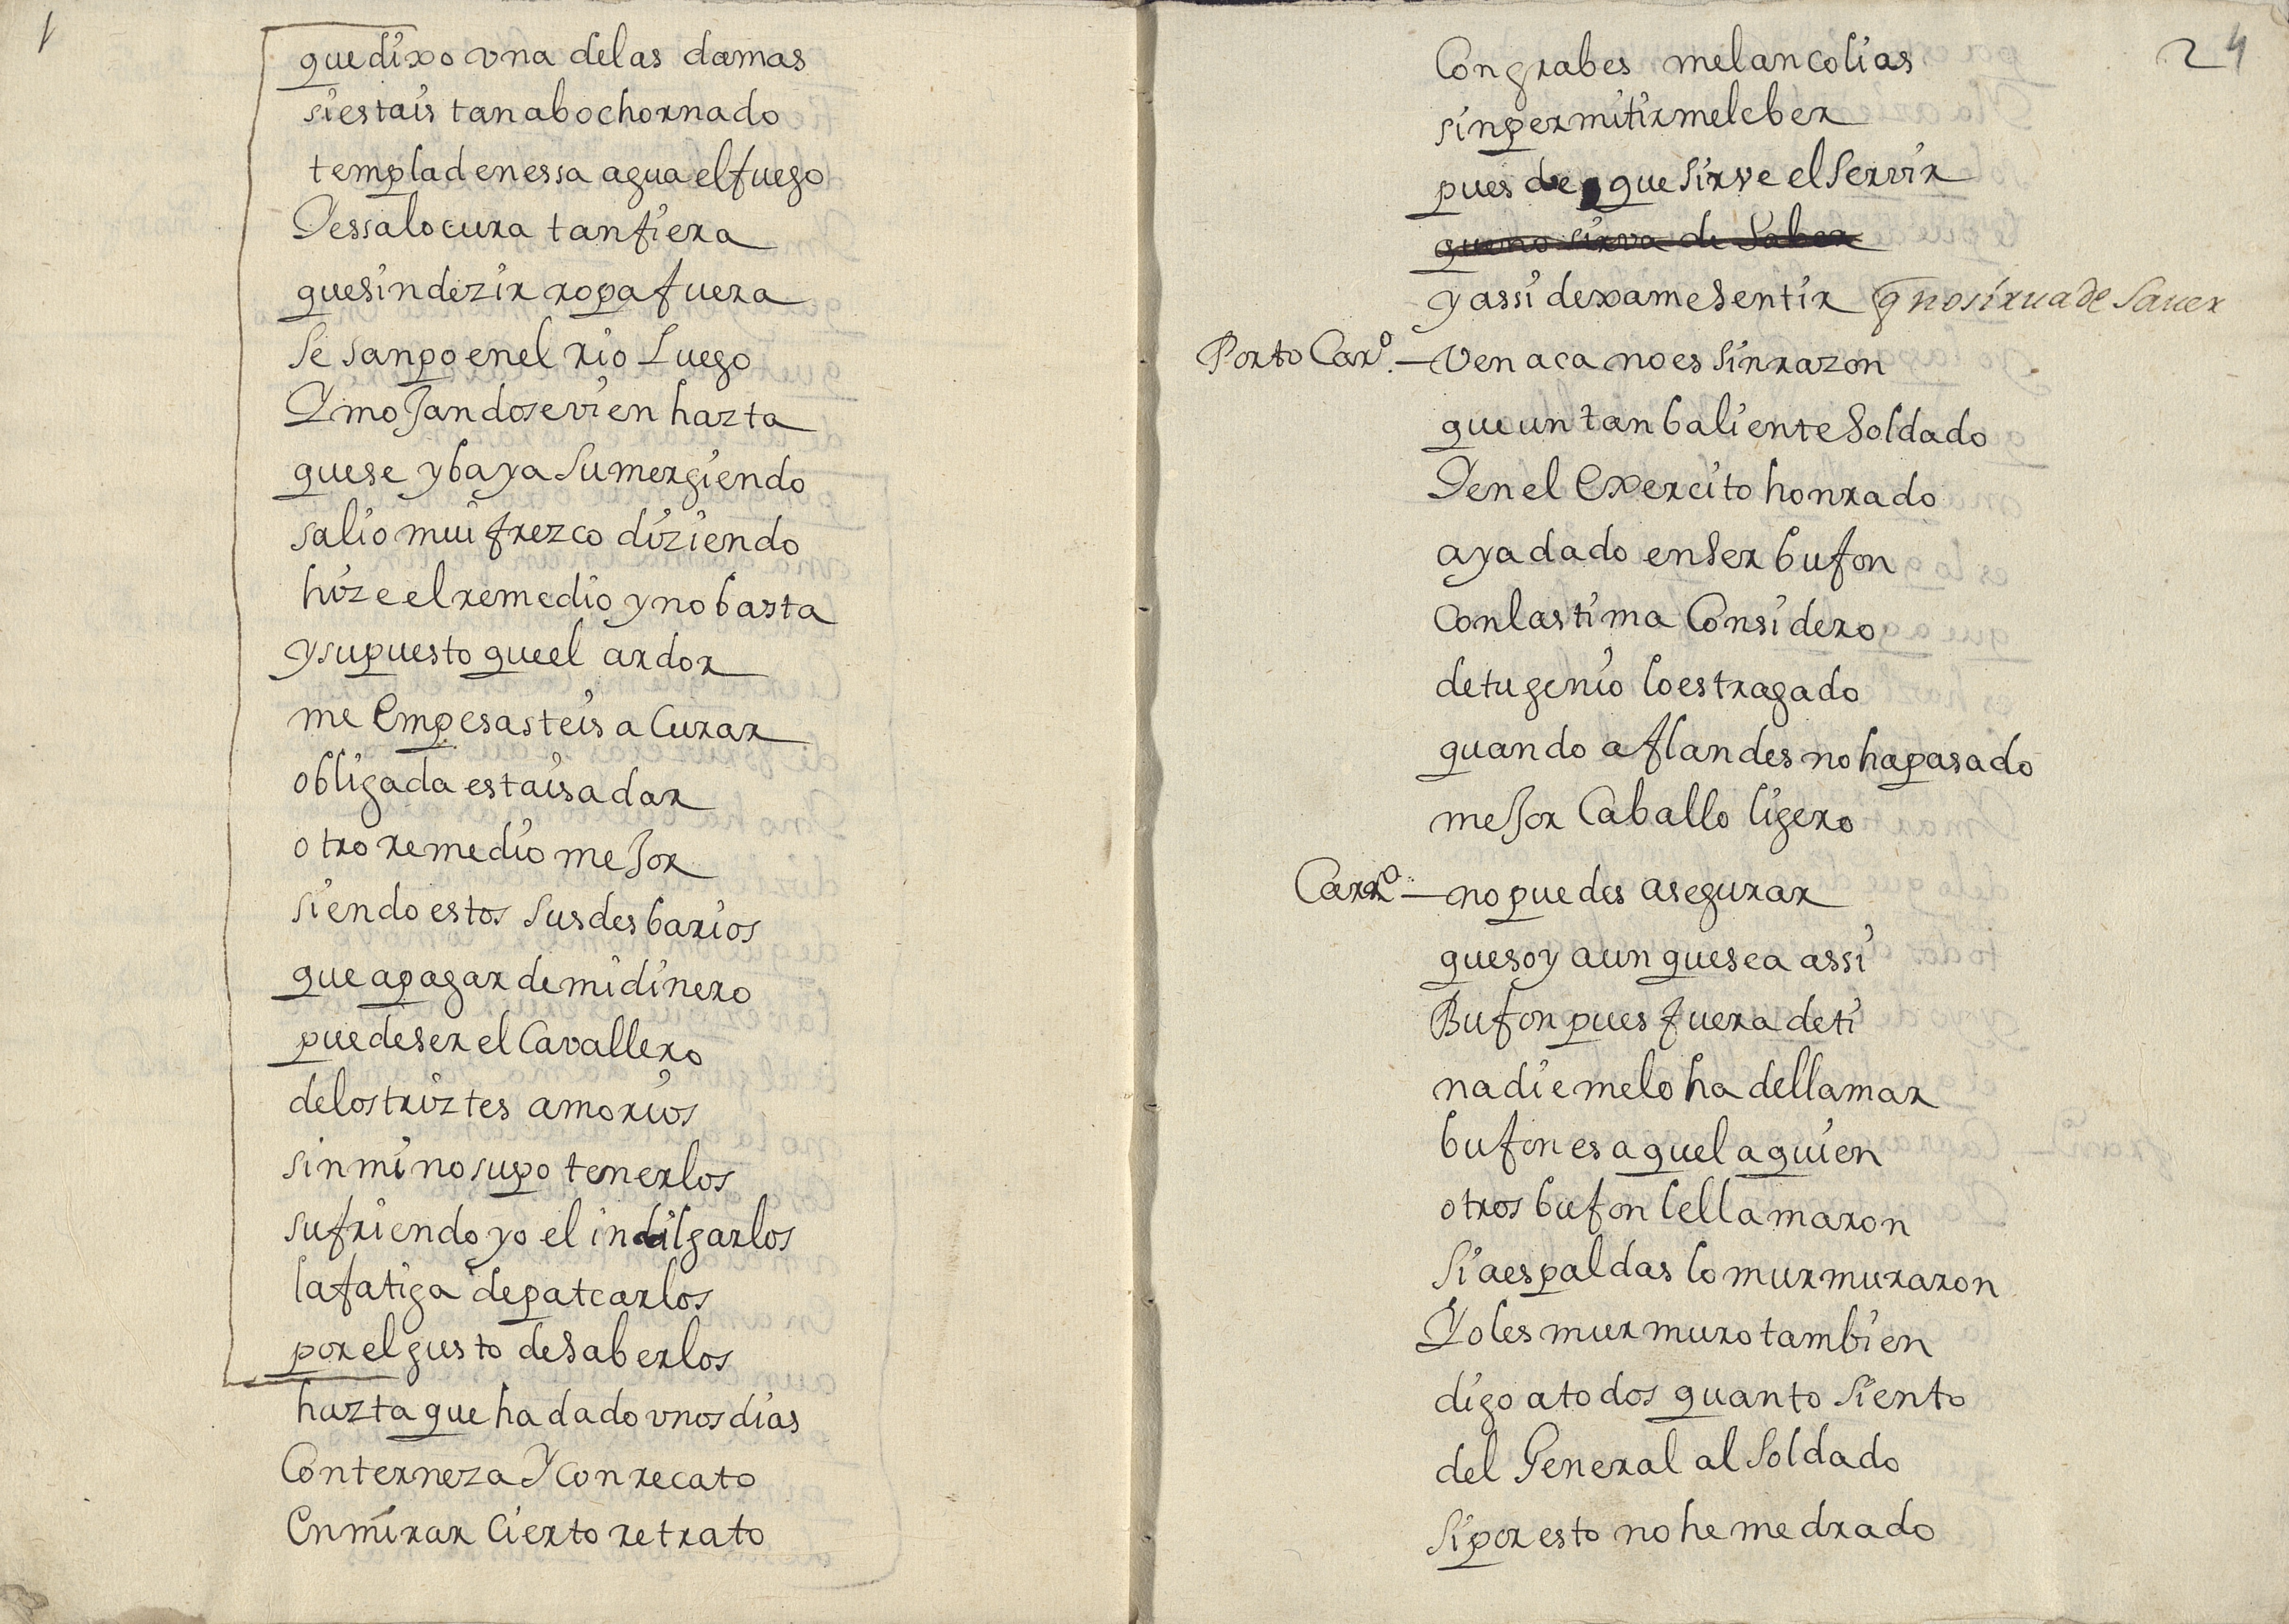 que dixo vna de las damas
si estais tan abochornado
templad en essa agua el fuego
Y essa locura tan fiera
que sin dezir ropa fuera
se sanpo en el rio Luego
Y moJandose vien hazta
que se yba ya sumergiendo
salio mui frezco diziendo
hize el remedio y no basta
y supuesto que el ardor
me Empesasteis a Curar
obligada estais a dar
otro remedio meJor
siendo estos sus desbarios
que a pagar de mi dinero
puede ser el Cavallero
de los triztes amorios
sin mi no supo tenerlos
sufriendo yo el indilgarlos
la fatiga de patearlos
por el gusto de saberlos
hazta que ha dado vnos dias
Con terneza Y con recato
En mirar Cierto retrato
24
Con grabes melancolias
sin permitirme leber
pues de que sirve el servir
que no sirva de Saber
y assi dexame sentir q̄ no sirua de Sauer
Porto Carº. — Ven aca no es sin razon
que un tan baliente Soldado
Y en el Exercito honrado
aya dado en ser bufon
Con lastima Considero
de tu genio lo estragado
quando a flandes no ha pasado
meJor Caballo ligero
Carrº. — no puedes asegurar
que soy aun que sea assi
Bufon pues fuera de ti
nadie me lo ha de llamar
bufon es aquel a quien
otros bufon le llamaron
Si a espaldas lo murmuraron
Yo les murmuro tambien
digo a todos quanto siento
del General al Soldado
si por esto no he medrado